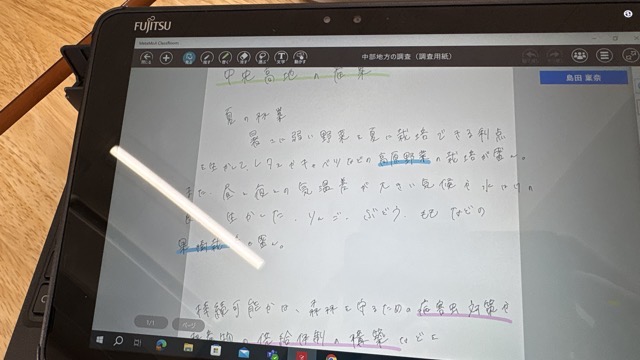 FUJITSU
MetaMoJi ClassRoom
中部地方の調査（調査用紙）
島田
中央高地の産業
夏の林業
暑さに弱い野菜を夏に栽培できる利点
を生かして、レタスやキャベツなどの高原野菜の栽培が盛ん。
また、昼と夜との気温差が大きい気候や水はけの
生かした、りんご、ぶどう、ももなどの
果樹 盛ん。
持続可能 は、森林を守るための病害虫対策や
供給体制の構築など
1/1
ページ